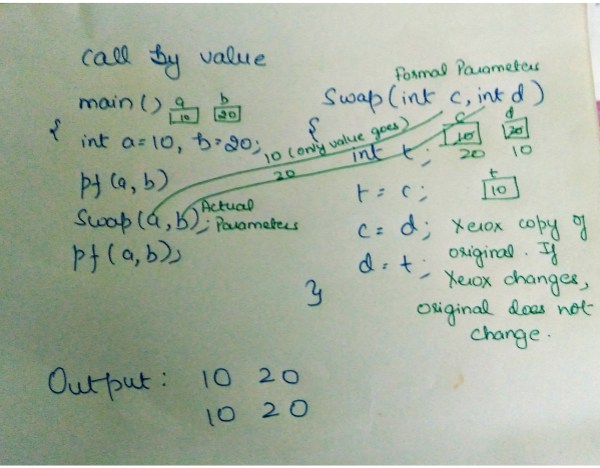 Call By value
main()
a
10
b
20
{ int a=10, b=20;
pf(a,b)
Swap(a,b);
Actual
Parameters
pf(a,b);
10 (only value goes)
20
Formal Parameters
Swap(int c, int d)
{
int t;
c
10
20
d
20
10
t = c;
t
10
c = d;
d = t;
}
Xerox copy of
original. If
Xerox changes,
original does not
change.
Output: 10 20
10 20